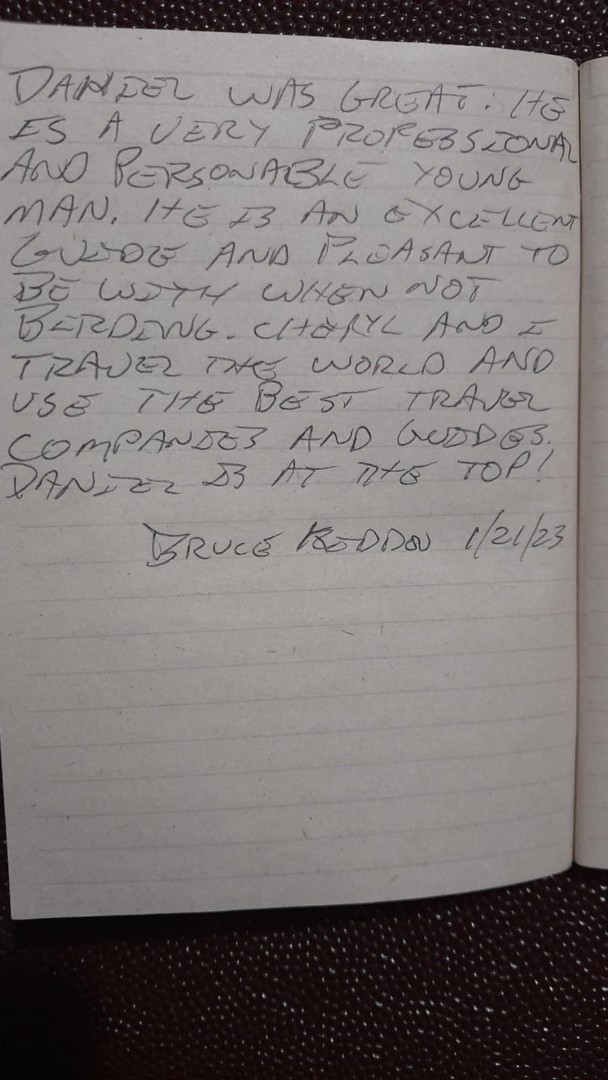 DANIEL WAS GREAT. HE
IS A VERY PROFESSIONAL
AND PERSONABLE YOUNG
MAN. HE IS AN EXCELLENT
GUIDE AND PLEASANT TO
BE WITH WHEN NOT
BIRDING. CHERYL AND I
TRAVEL THE WORLD AND
USE THE BEST TRAVEL
COMPANIES AND GUIDES.
DANIEL IS AT THE TOP!
BRUCE 1/21/23